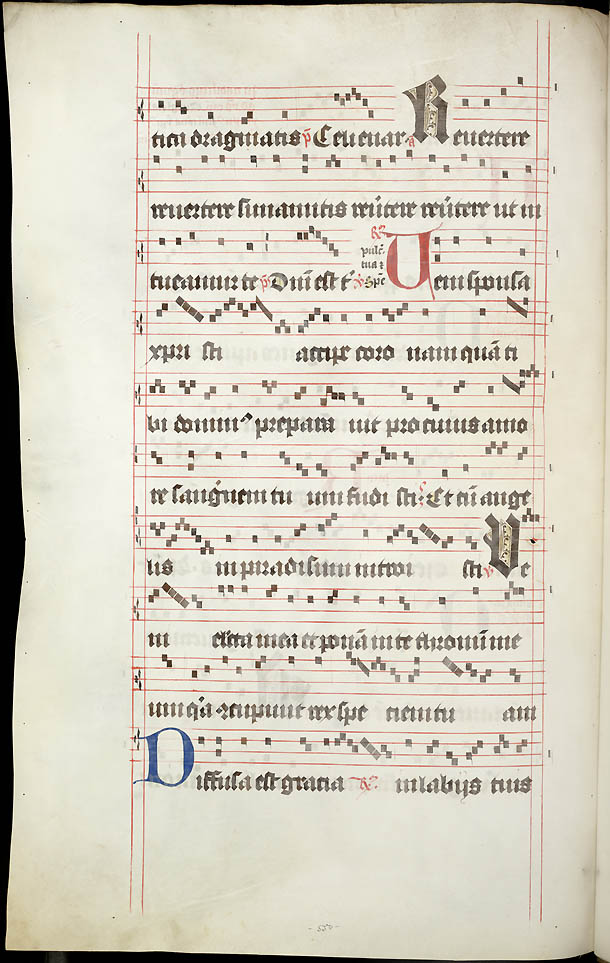 ticū dragmatis p̄ Celi enar a Revertere
revertere sunamitis rev̄tere rev̄tere ut in
tueamur te p̄ Dn̄i est t̄ Veni sponsa
xpri sti accipe coro nam quā ti
bi domin⁹ prepara vit pro cuius amo
re sanguinem tu um fudi sti Et cū ange
lis in paradisum introi sti Ve
ni electa mea et ponā in te thronum me
um q̄a cupivit rex spe ciem tu am
Diffusa est gracia in labijs tuis
- 550 -